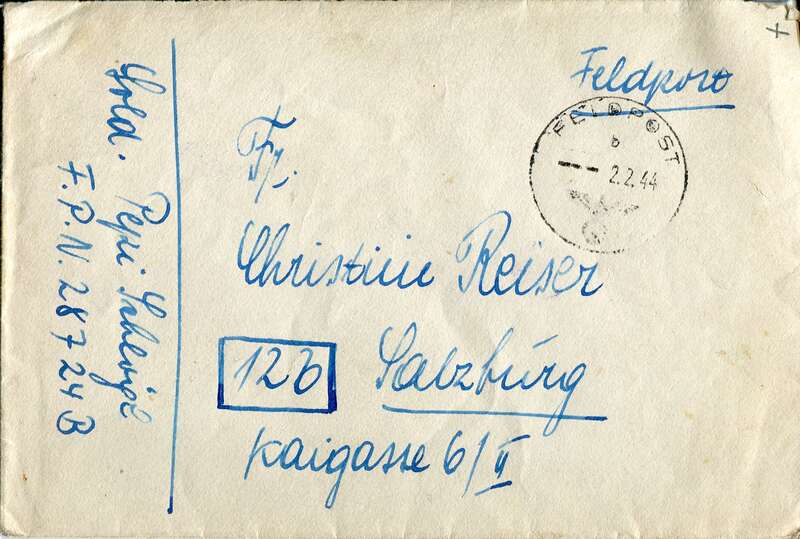 Feldpost
FELDPOST
b
2.2.44
Frl.
Christine Reiser
12b Salzburg
Kaigasse 6/II
Sold. Pepi
F.P.N. 28724B